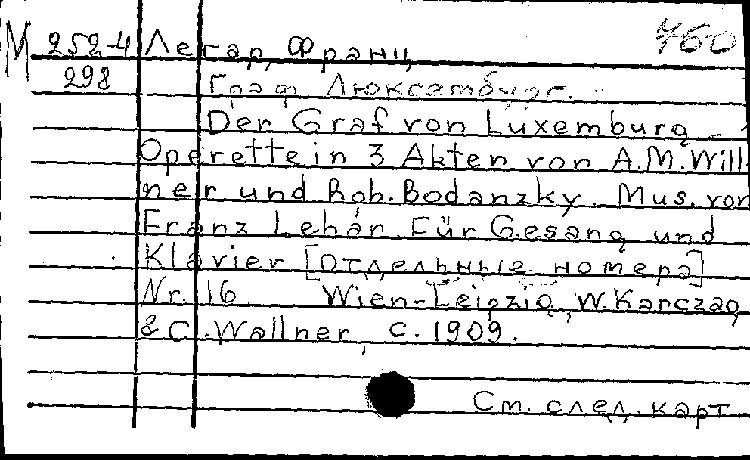 М 252-4 Легар, Франц 760
298 Граф Люксембург.
Der Graf von Luxemburg –
Operette in 3 Akten von A.M. Will-
ner und Rob. Bodanzky. Mus. von
Franz Lehár. Für Gesang und
Klavier [отдельные номера]
Nr. 16 Wien-Leipzig, W. Karczag
& C. Wallner, c. 1909.
См. след. карт